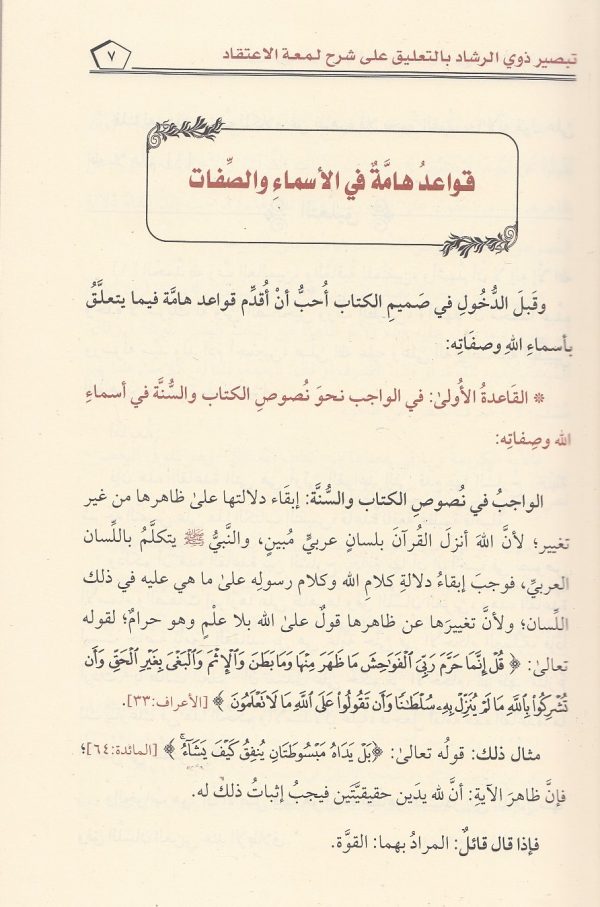 تبصير ذوي الرشاد بالتعليق على شرح لمعة الاعتقاد
٧
قواعدُ هامَّةٌ في الأسماءِ والصِّفات
وقَبلَ الدُّخُولِ في صَميمِ الكتاب أُحبُّ أنْ أُقدِّم قواعد هامَّة فيما يتعلَّقُ
بأسماءِ اللهِ وصفَاتِه:
* القَاعدةُ الأُولىٰ: في الواجب نحوَ نُصوصِ الكتاب والسُّنَّة في أسماءِ
الله وصِفاتِه:
الواجبُ في نُصوصِ الكتاب والسُّنَّة: إبقَاء دلالتها علىٰ ظاهرها من غير
تغيير؛ لأنَّ اللهَ أنزلَ القُرآنَ بلسانٍ عربيٍّ مُبينٍ، والنَّبيُّ ﷺ يتكلَّمُ باللِّسان
العربيِّ، فوجبَ إبقاءُ دلالةِ كلامِ الله وكلام رسولِه علىٰ ما هي عليه في ذلك
اللِّسان؛ ولأنَّ تغييرَها عن ظاهرها قولٌ علىٰ الله بلا علْمٍ وهو حرامٌ؛ لقوله
تعالىٰ: ﴿ قُلْ إِنَّمَا حَرَّمَ رَبِّيَ ٱلْفَوَٰحِشَ مَا ظَهَرَ مِنْهَا وَمَا بَطَنَ وَٱلْإِثْمَ وَٱلْبَغْيَ بِغَيْرِ ٱلْحَقِّ وَأَن
تُشْرِكُوا۟ بِٱللَّهِ مَا لَمْ يُنَزِّلْ بِهِۦ سُلْطَٰنًا وَأَن تَقُولُوا۟ عَلَى ٱللَّهِ مَا لَا تَعْلَمُونَ ﴾ [الأعراف:٣٣].
مثال ذلك: قولُه تعالىٰ: ﴿بَلْ يَدَاهُ مَبْسُوطَتَانِ يُنفِقُ كَيْفَ يَشَآءُ ۚ ﴾ [المائدة:٦٤]؛
فإنَّ ظاهرَ الآيةِ: أنَّ لله يدَين حقيقيَّتَين فيجبُ إثباتُ ذلك له.
فإذا قال قائلٌ: المرادُ بهما: القوَّة.